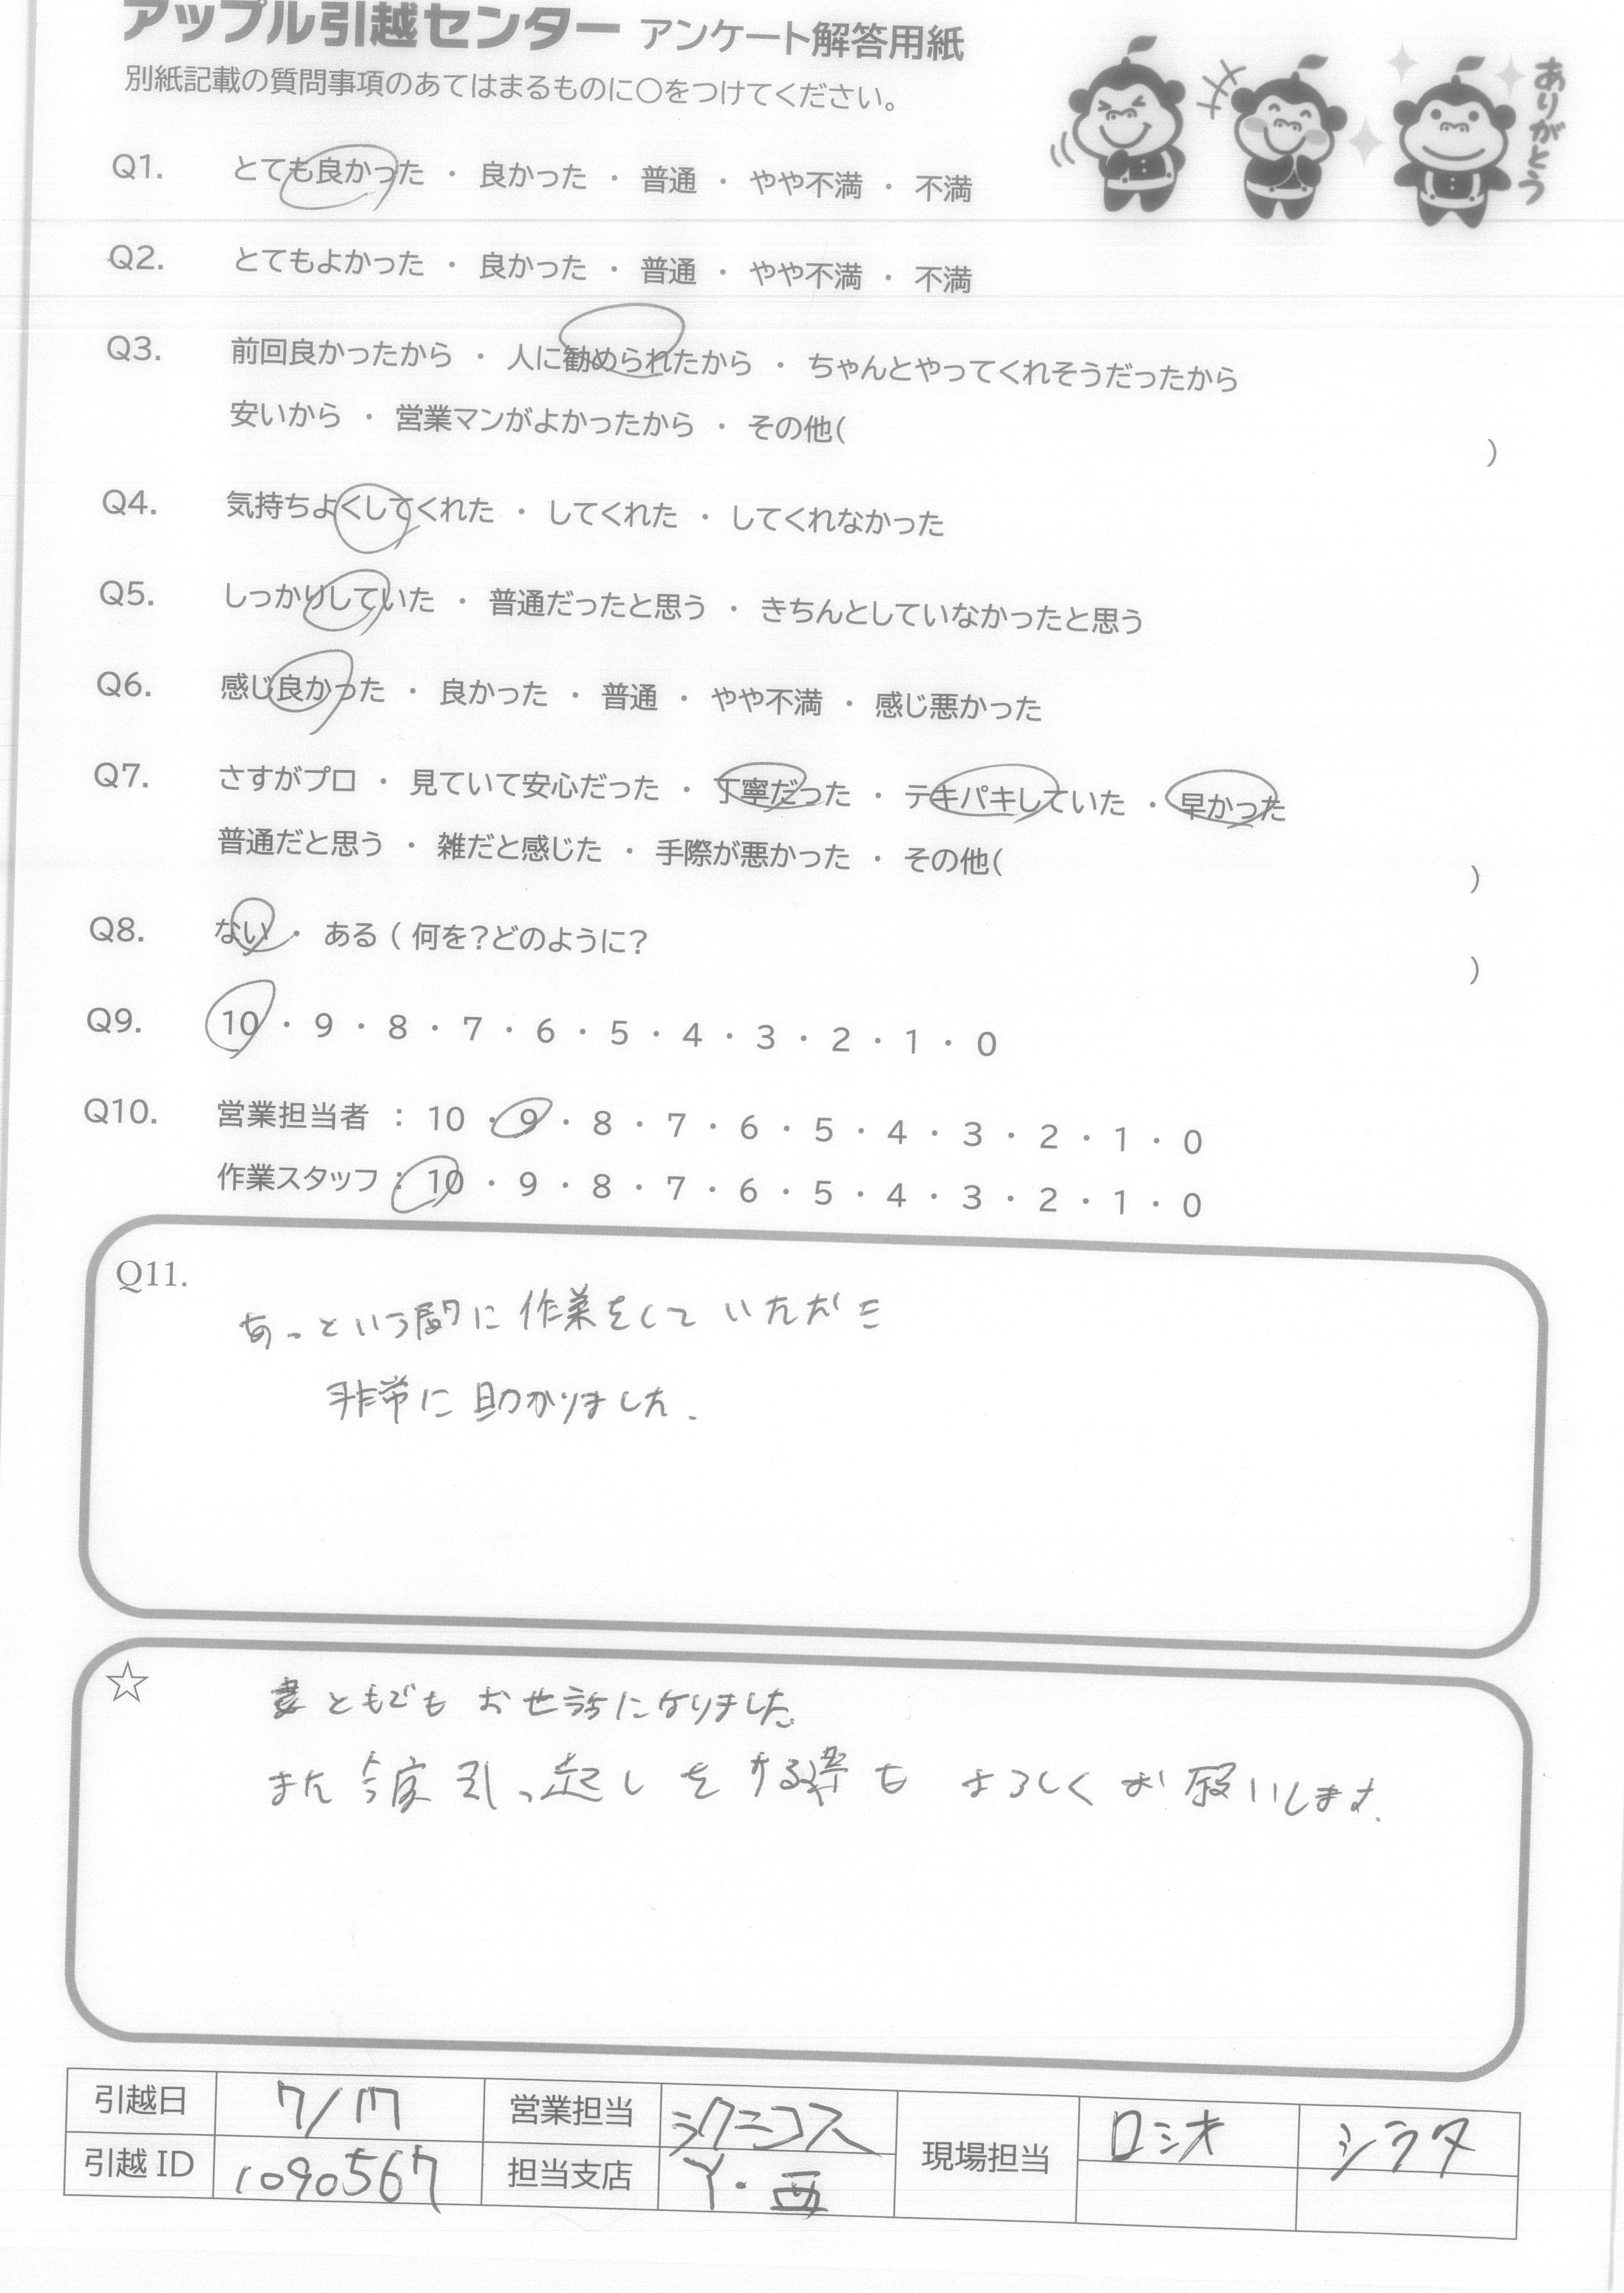 アップル引越センター アンケート解答用紙
別紙記載の質問事項のあてはまるものに〇をつけてください。
ありがとう
Q1. とても良かった ・ 良かった ・ 普通 ・ やや不満 ・ 不満
Q2. とてもよかった ・ 良かった ・ 普通 ・ やや不満 ・ 不満
Q3. 前回良かったから ・ 人に勧められたから ・ ちゃんとやってくれそうだったから
安いから ・ 営業マンがよかったから ・ その他( )
Q4. 気持ちよくしてくれた ・ してくれた ・ してくれなかった
Q5. しっかりしていた ・ 普通だったと思う ・ きちんとしていなかったと思う
Q6. 感じ良かった ・ 良かった ・ 普通 ・ やや不満 ・ 感じ悪かった
Q7. さすがプロ ・ 見ていて安心だった ・ 丁寧だった ・ テキパキしていた ・ 早かった
普通だと思う ・ 雑だと感じた ・ 手際が悪かった ・ その他( )
Q8. ない ・ ある ( 何を?どのように? )
Q9. 10 ・ 9 ・ 8 ・ 7 ・ 6 ・ 5 ・ 4 ・ 3 ・ 2 ・ 1 ・ 0
Q10. 営業担当者 : 10 ・ 9 ・ 8 ・ 7 ・ 6 ・ 5 ・ 4 ・ 3 ・ 2 ・ 1 ・ 0
作業スタッフ : 10 ・ 9 ・ 8 ・ 7 ・ 6 ・ 5 ・ 4 ・ 3 ・ 2 ・ 1 ・ 0
Q11.
あっという間に作業をしていただき
非常に助かりました.
☆
妻ともどもお世話になりました.
また今度引っ起しをする際もよろしくお願いします.
引越日 7/17 営業担当 現場担当 ロシオ シラタ
引越 ID 1090567 担当支店 Y・西